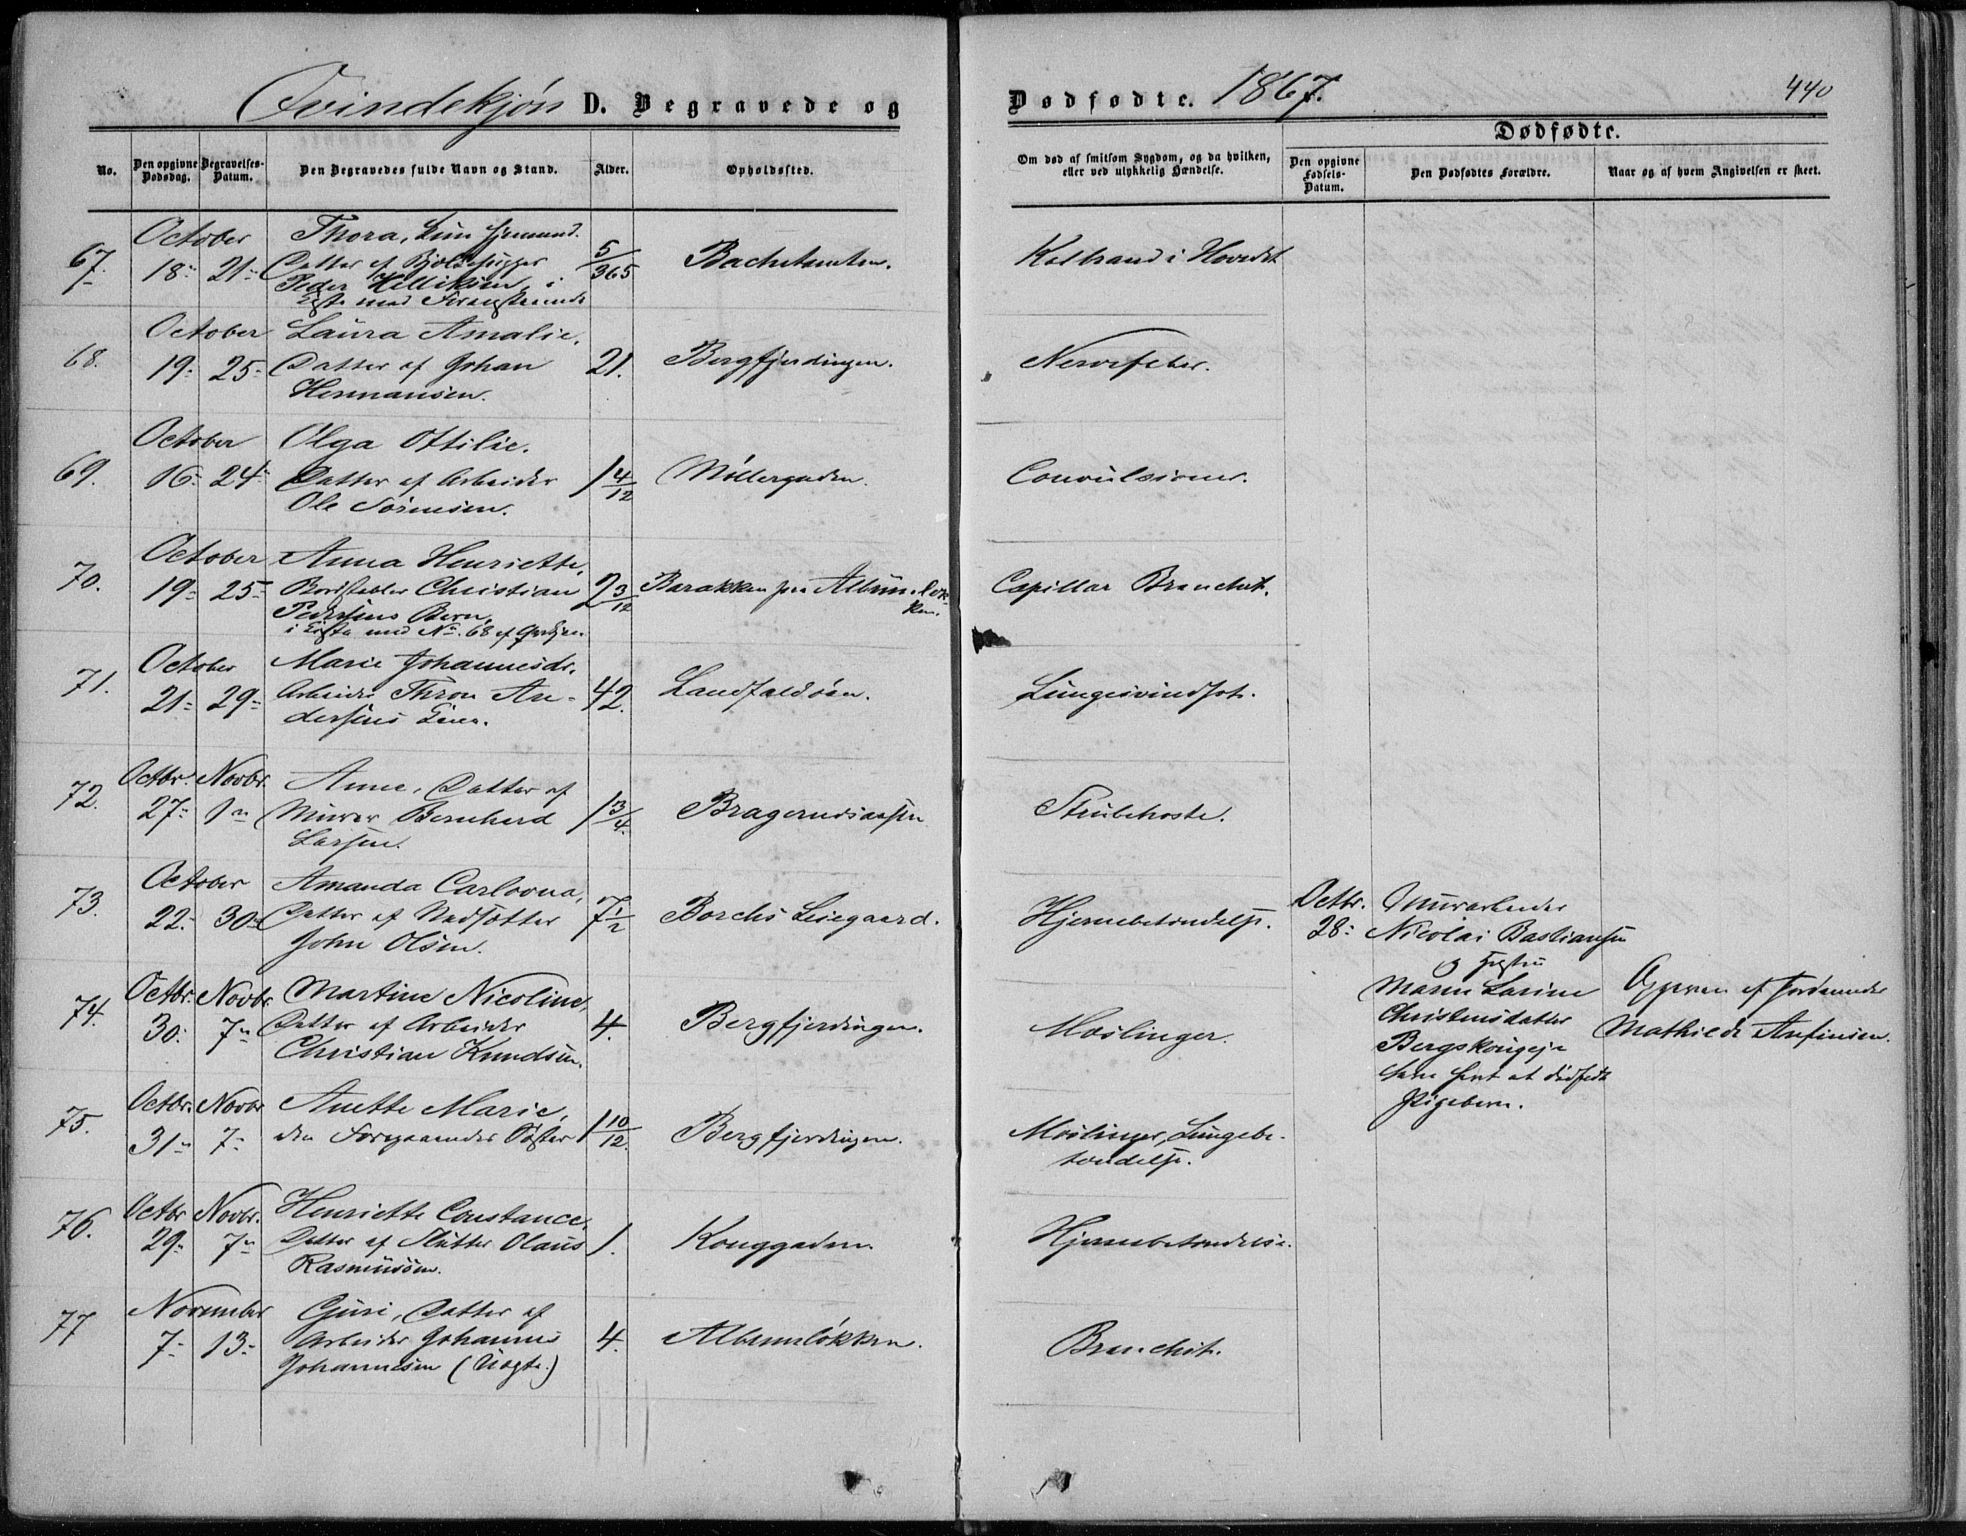 Qvindekjøn D. Begravede og Dødfødte. 1867. 440
Dødfødte.
No. Den opgivne Dødsdag. Begravelses-Datum. Den Begravedes fulde Navn og Stand. Alder. Opholdssted. Om død af smitsom Sygdom, og da hvilken, eller ved ulykkelig Hændelse. Den opgivne Fødsels-Datum. Den Dødfødtes Forældre. Naar og af hvem Angivelsen er skeet.
October Thora,
67. 18- 21- Datter af 5/365 Koldbrand i Hovedet
Peder i
Kiste med
October Laura Amalie,
68. 19- 25- Datter af Johan 21. Bergfjerdingen. Nervefeber.
Hermansen.
October Olga Ottilie.
69. 16- 24- Datter af Arbeider 1 4/12 Møllergaden. Convulsioner.
Ole Sørensen.
October Anna Henriette,
70. 19- 25- Christian 2 3/12 Barakken paa Albumløkken. Capillar Bronchit.
Pedersens Barn,
i Kiste med No. 68 af
October Marie Johannesdr.
71. 21- 29- Arbeider Thron An- 42. Landfaldøen. Lungesvindsot.
dersens Enke.
Octbr. Novbr. Anne, Datter af
72. 27- 1- Murer Bernhard 1 3/4. Bragernesaasen Strubehoste.
Larsen.
October Amanda Carlovna,
73. 22- 30- Datter af John Olsen. 7 1/2 Borchs Leiegaard. Hjernebetændelse.
Octbr. 28- Murarbeider
Nicolai Bastiansen
og Hustru
Maren Larine
Christensdatter
Bergskougeje
have havt et dødfødt
Pigebarn.
Opgiven af Jordemoder
Mathilde Anfinsen.
Octbr. Novbr. Martine Nicoline,
74. 30- 7- Datter af Arbeider 4. Bergfjerdingen. Mæslinger.
Christian Knudsen.
Octbr. Novbr. Anette Marie,
75. 31- 7- den Foregaaendes Søster 1 10/12. Bergfjerdingen. Mæslinger, Lungebe-
tændelse.
Octbr. Novbr. Henriette Constance,
76. 29- 7- Datter af Slutter Olaus 1. Konggaden. Hjernebetændelse.
Rasmussen.
November Guri, Datter af
77 7- 13- Arbeider Johannes 4. Albumløkken. Bronchit.
Johannesen (Uægte.)